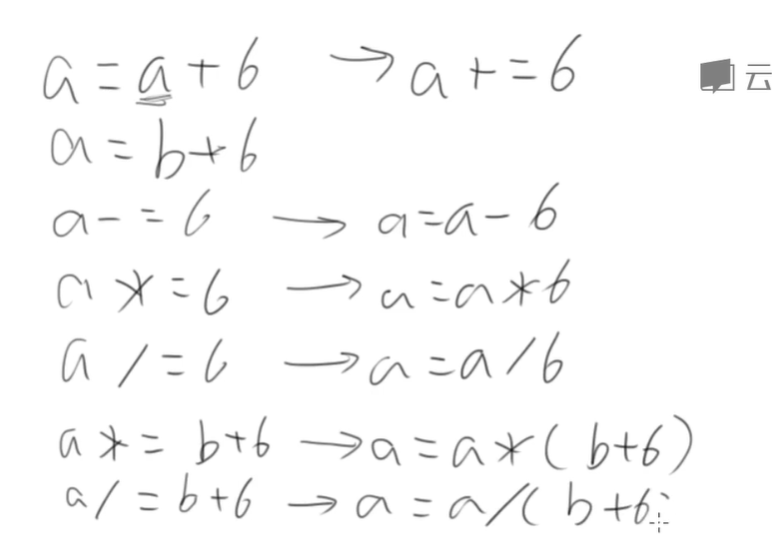 a = a + 6 → a + = 6
云
a = b + 6
a - = 6 → a = a - 6
a * = 6 → a = a * 6
a / = 6 → a = a / 6
a * = b + 6 → a = a * ( b + 6 )
a / = b + 6 → a = a / ( b + 6 )